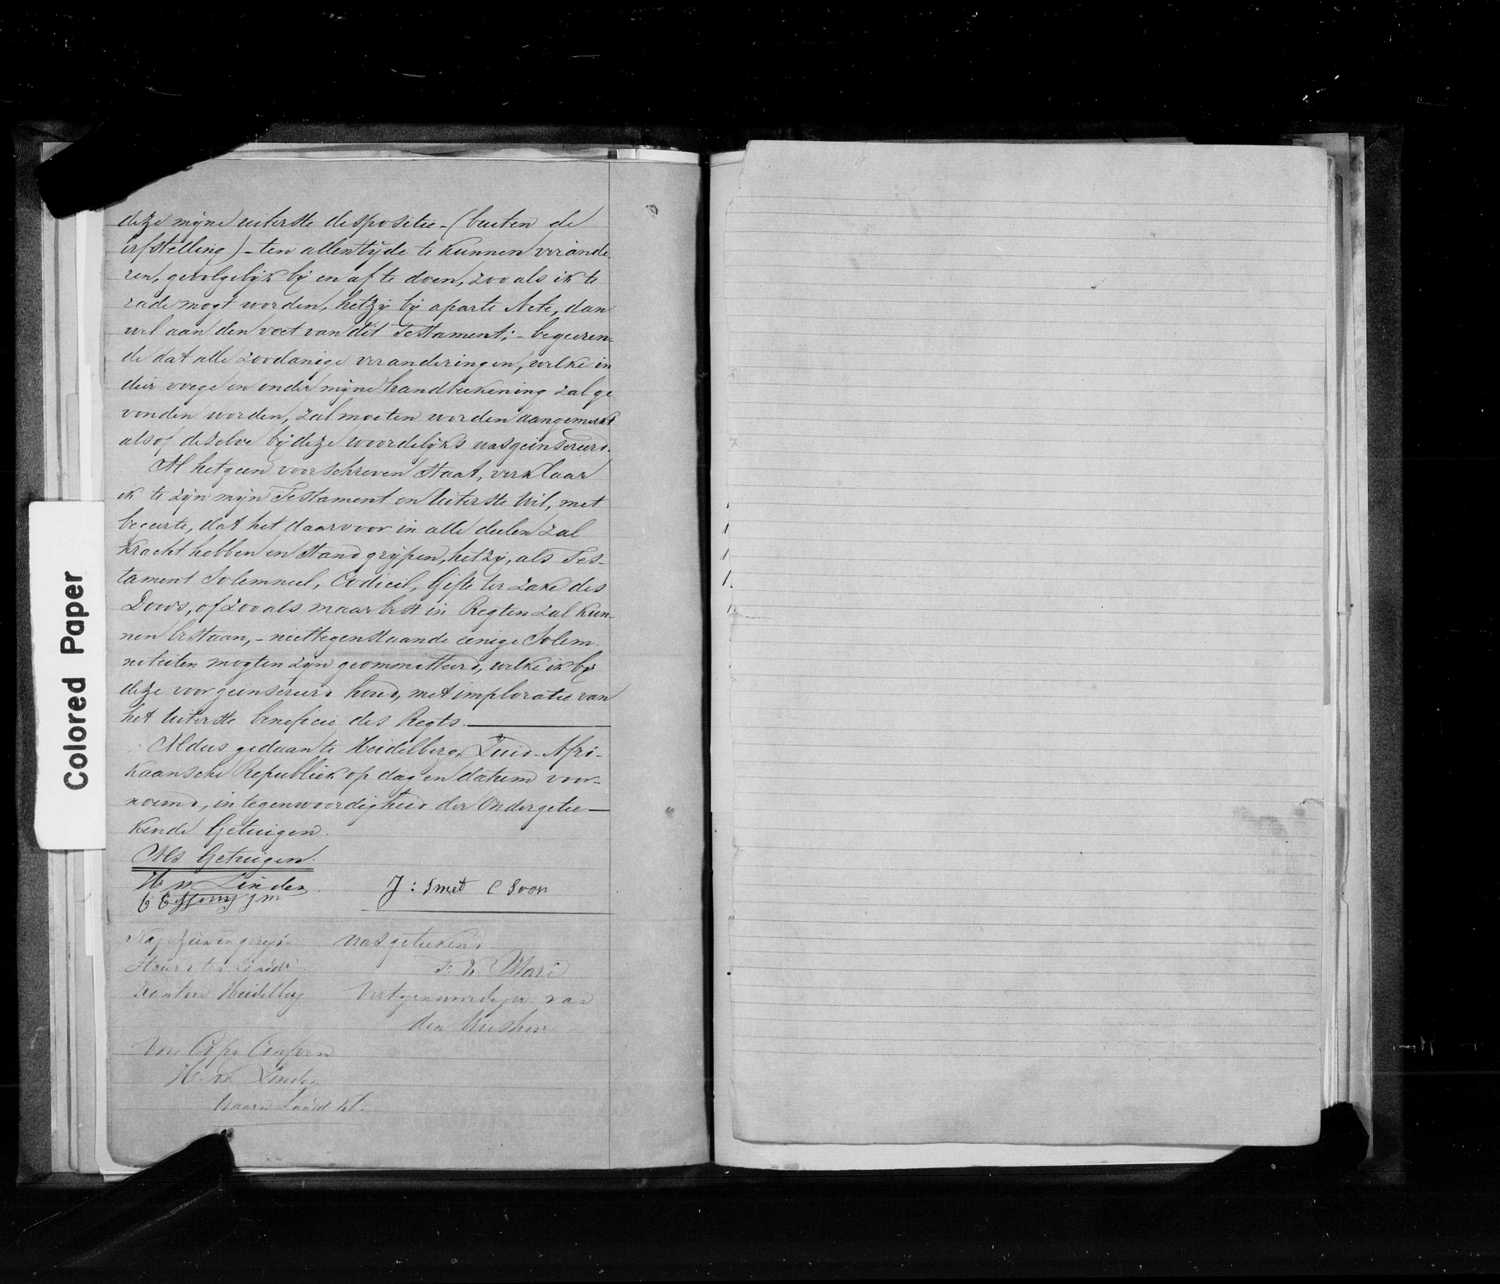 deze mijne uiterste dispositie - (buiten de
erfstelling) - ten allentijde te kunnen verande
ren, gevolgelijk bij en af te doen, zoo als ik te
rade mogt worden, hetzij bij aparte Acte, dan
wel aan den voet van dit Testament; - begeeren-
de dat alle zoodanige veranderingen, welke in
dier voege en onder mijne handteekening zal ge
vonden worden, zal moeten worden aangemerkt
alsof dezelve bij deze woordelijks was geinsereerd.
Al hetgeen voorschreven staat, verklaar
ik te zijn mijn Testament en uiterste Wil, met
begeerte, dat het daarvoor in alle deelen zal
kracht hebben en stand grijpen, hetzij, als Tes-
tament Solemneel, Codicil, Gifte ter zake des
Doods, of zoo als maar best in Regten zal kun-
nen bestaan, - niettegenstaande eenige Solem
niteiten mogten zijn geommitteerd, welke ik bij
deze voor geinsereerd houd, met imploratie van
het uiterste beneficie des Regts.
Aldus gedaan te Heidelberg, Zuid-Afri-
kaansche Republiek op dag en datum voor-
noemd, in tegenwoordigheid der Ondergetee-
kende Getuigen.
Als Getuigen.
H v Linden J: Smet C Soon
was geteekend
Kantoor Heidelberg Vertegenwoordiger van
H. v Linden
Waarn Landdt